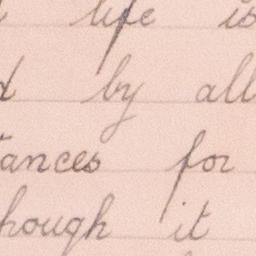 life is
by all
ances for
hough it